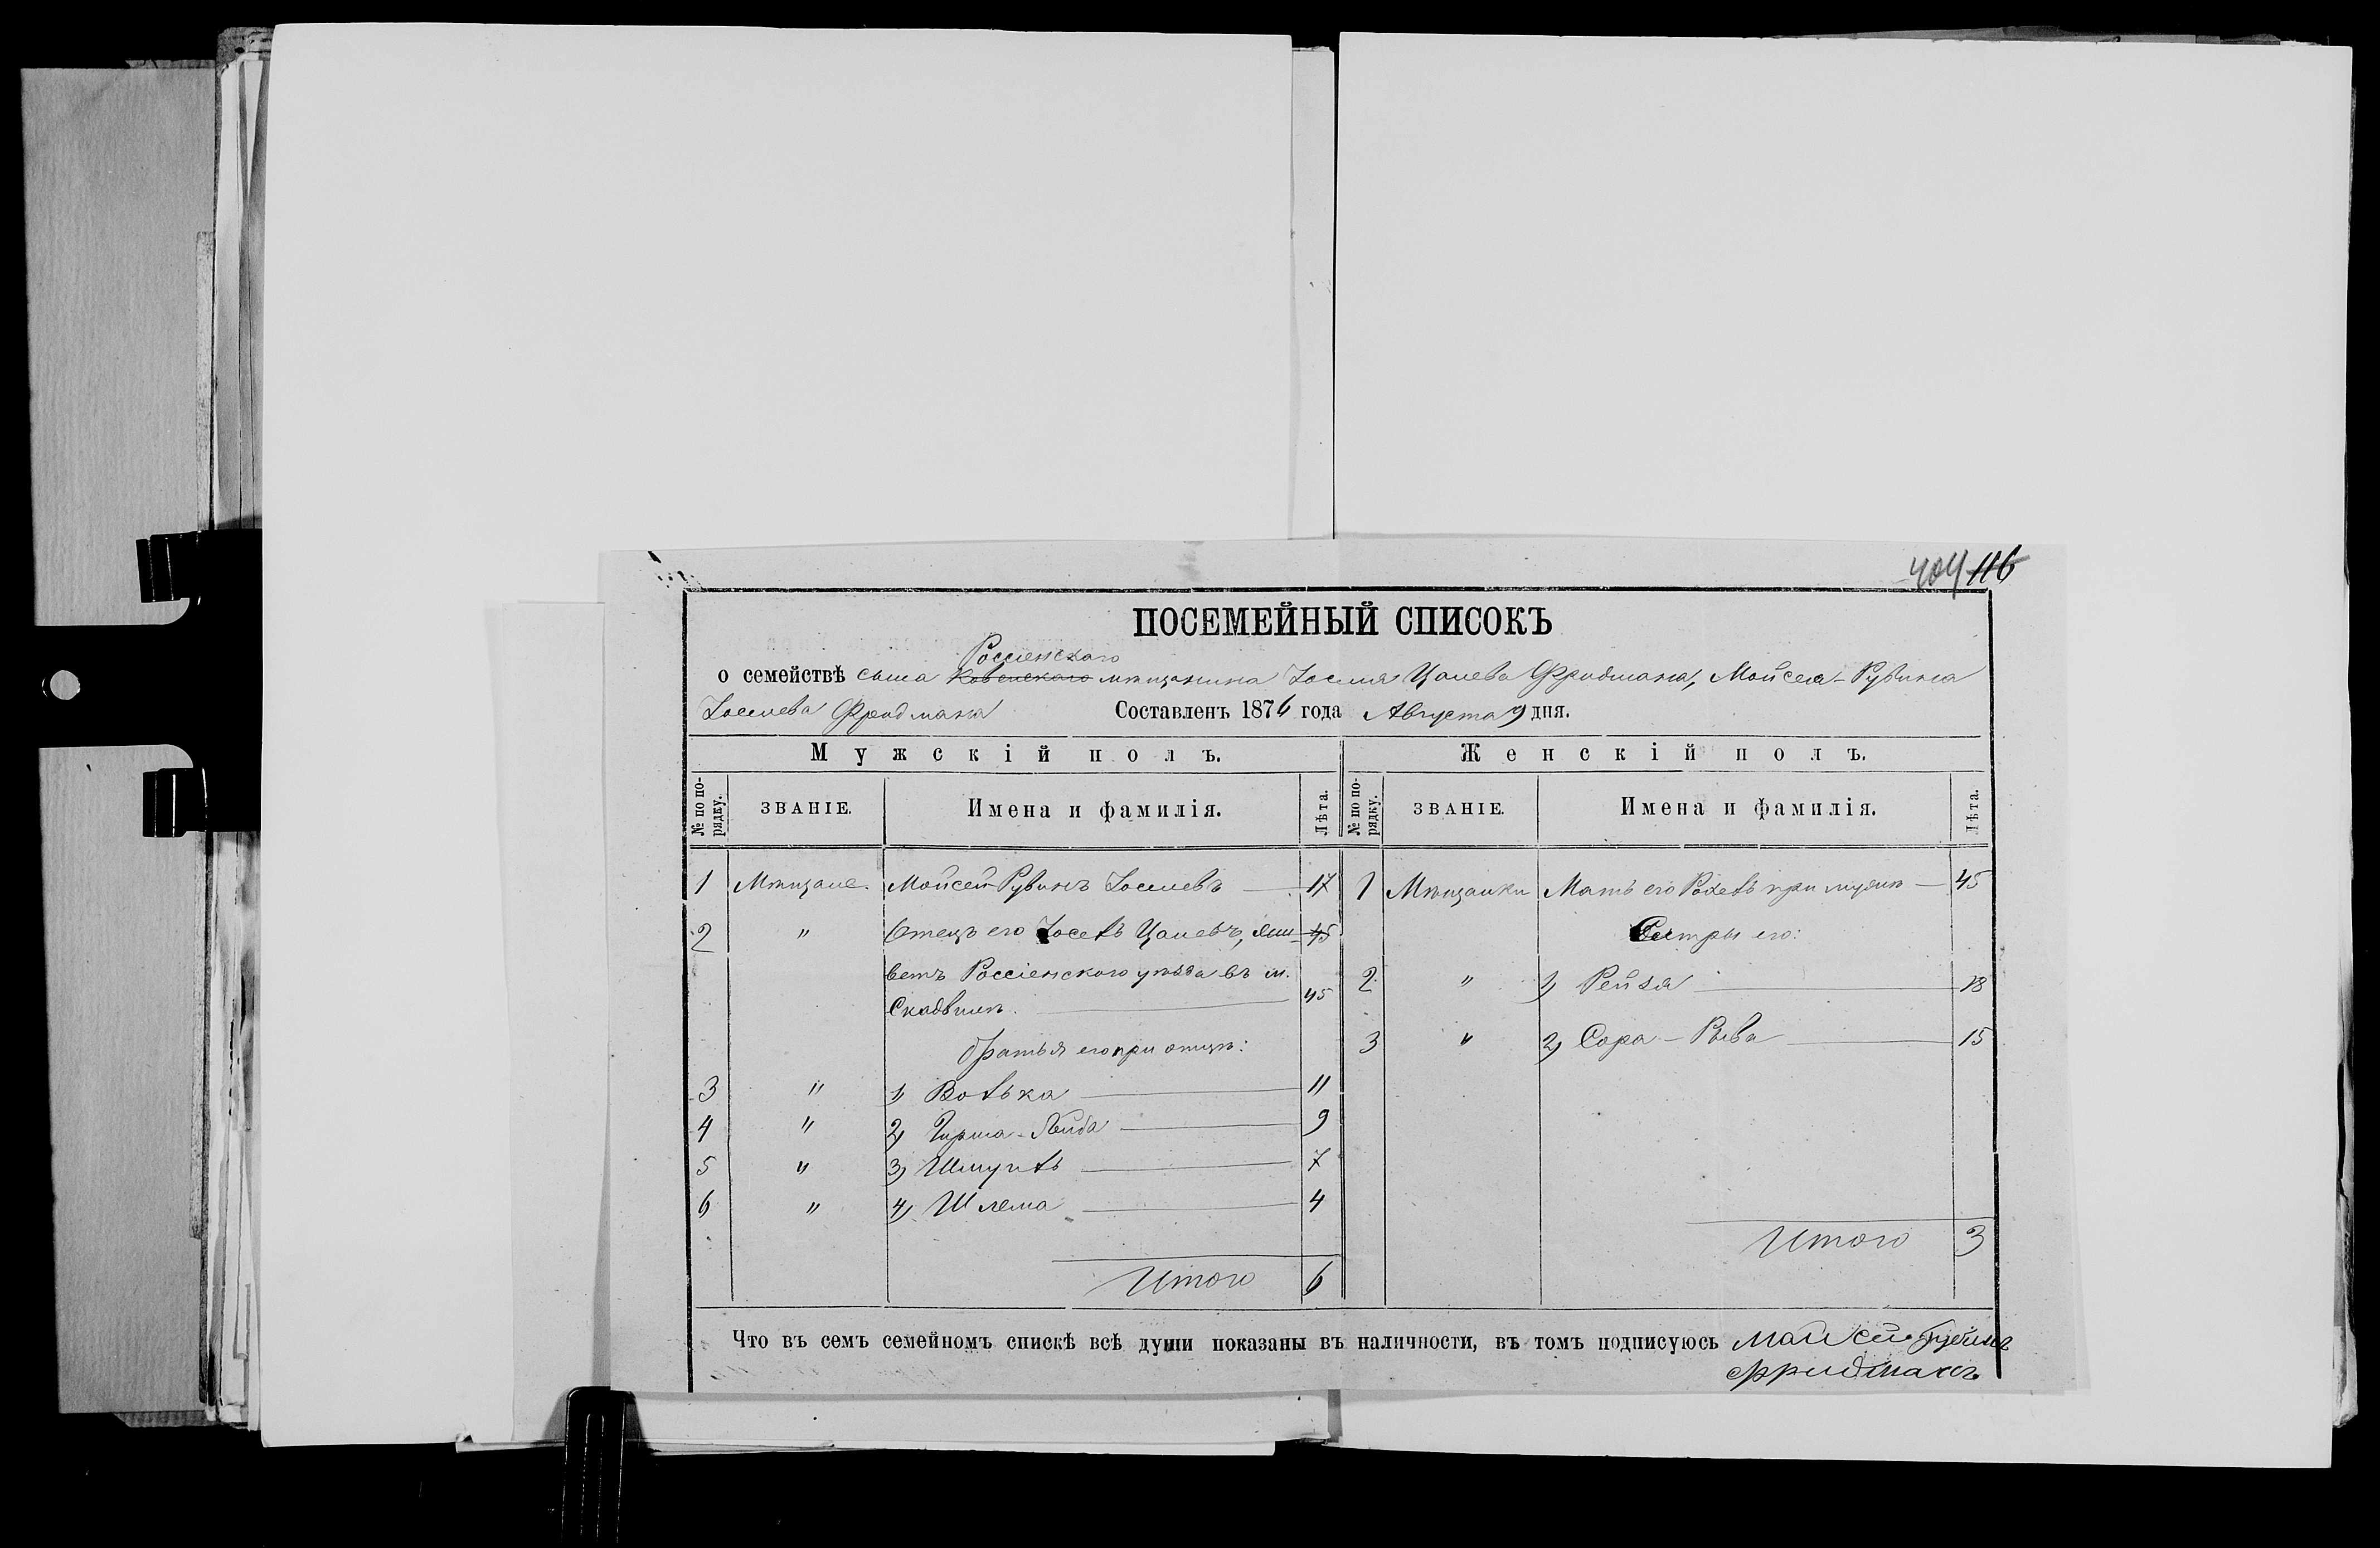 404 116
ПОСЕМЕЙНЫЙ СПИСОКЪ
Россіенскаго
о семействѣ сына Ковенскаго мѣщанина Іоселя Цалева Фридмана, Мойсея-Рувина
Іоселева Фридмана Составленъ 1876 года Августа 9 дня.
Мужскій полъ. Женскій полъ.
№ по порядку. ЗВАНІЕ. Имена и фамилія. Лѣта. № по порядку. ЗВАНІЕ. Имена и фамилія. Лѣта.
1 Мѣщане. Мойсей Рувинъ Іоселевъ 17 1 Мѣщанки Мать его при мужѣ 45
2 " Отецъ его Іосель Цалевъ, жи- 45 Сестры его:
ветъ Россіенскаго уѣзда въ м. 2 " 1) Рейза 18
Скадвилѣ. 45
братья его при отцѣ: 3 " 2) Сора-Рива 15
3 " 1) Волька 11
4 " 2) Гирша-Лейба 9
5 " 3) Шмуель 7
6 " 4) Шлема 4
Итого 3
Итого 6
Что въ семъ семейномъ спискѣ всѣ души показаны въ наличности, въ томъ подписуюсь
Фридманъ